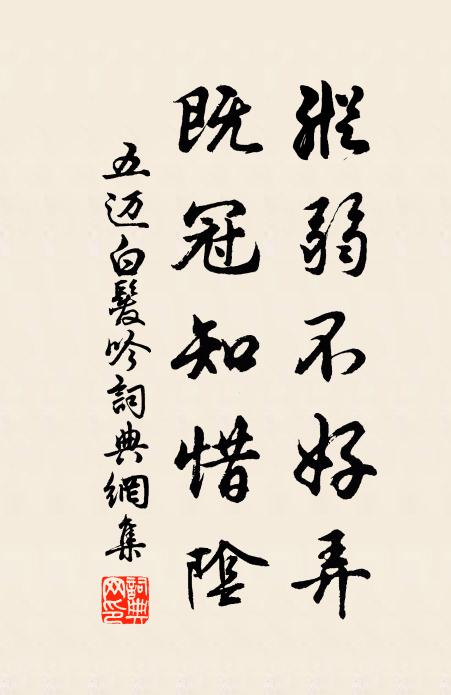 弱不好弄
既冠知惜陰
五迈白髮吟詞典網集
詞典
网印